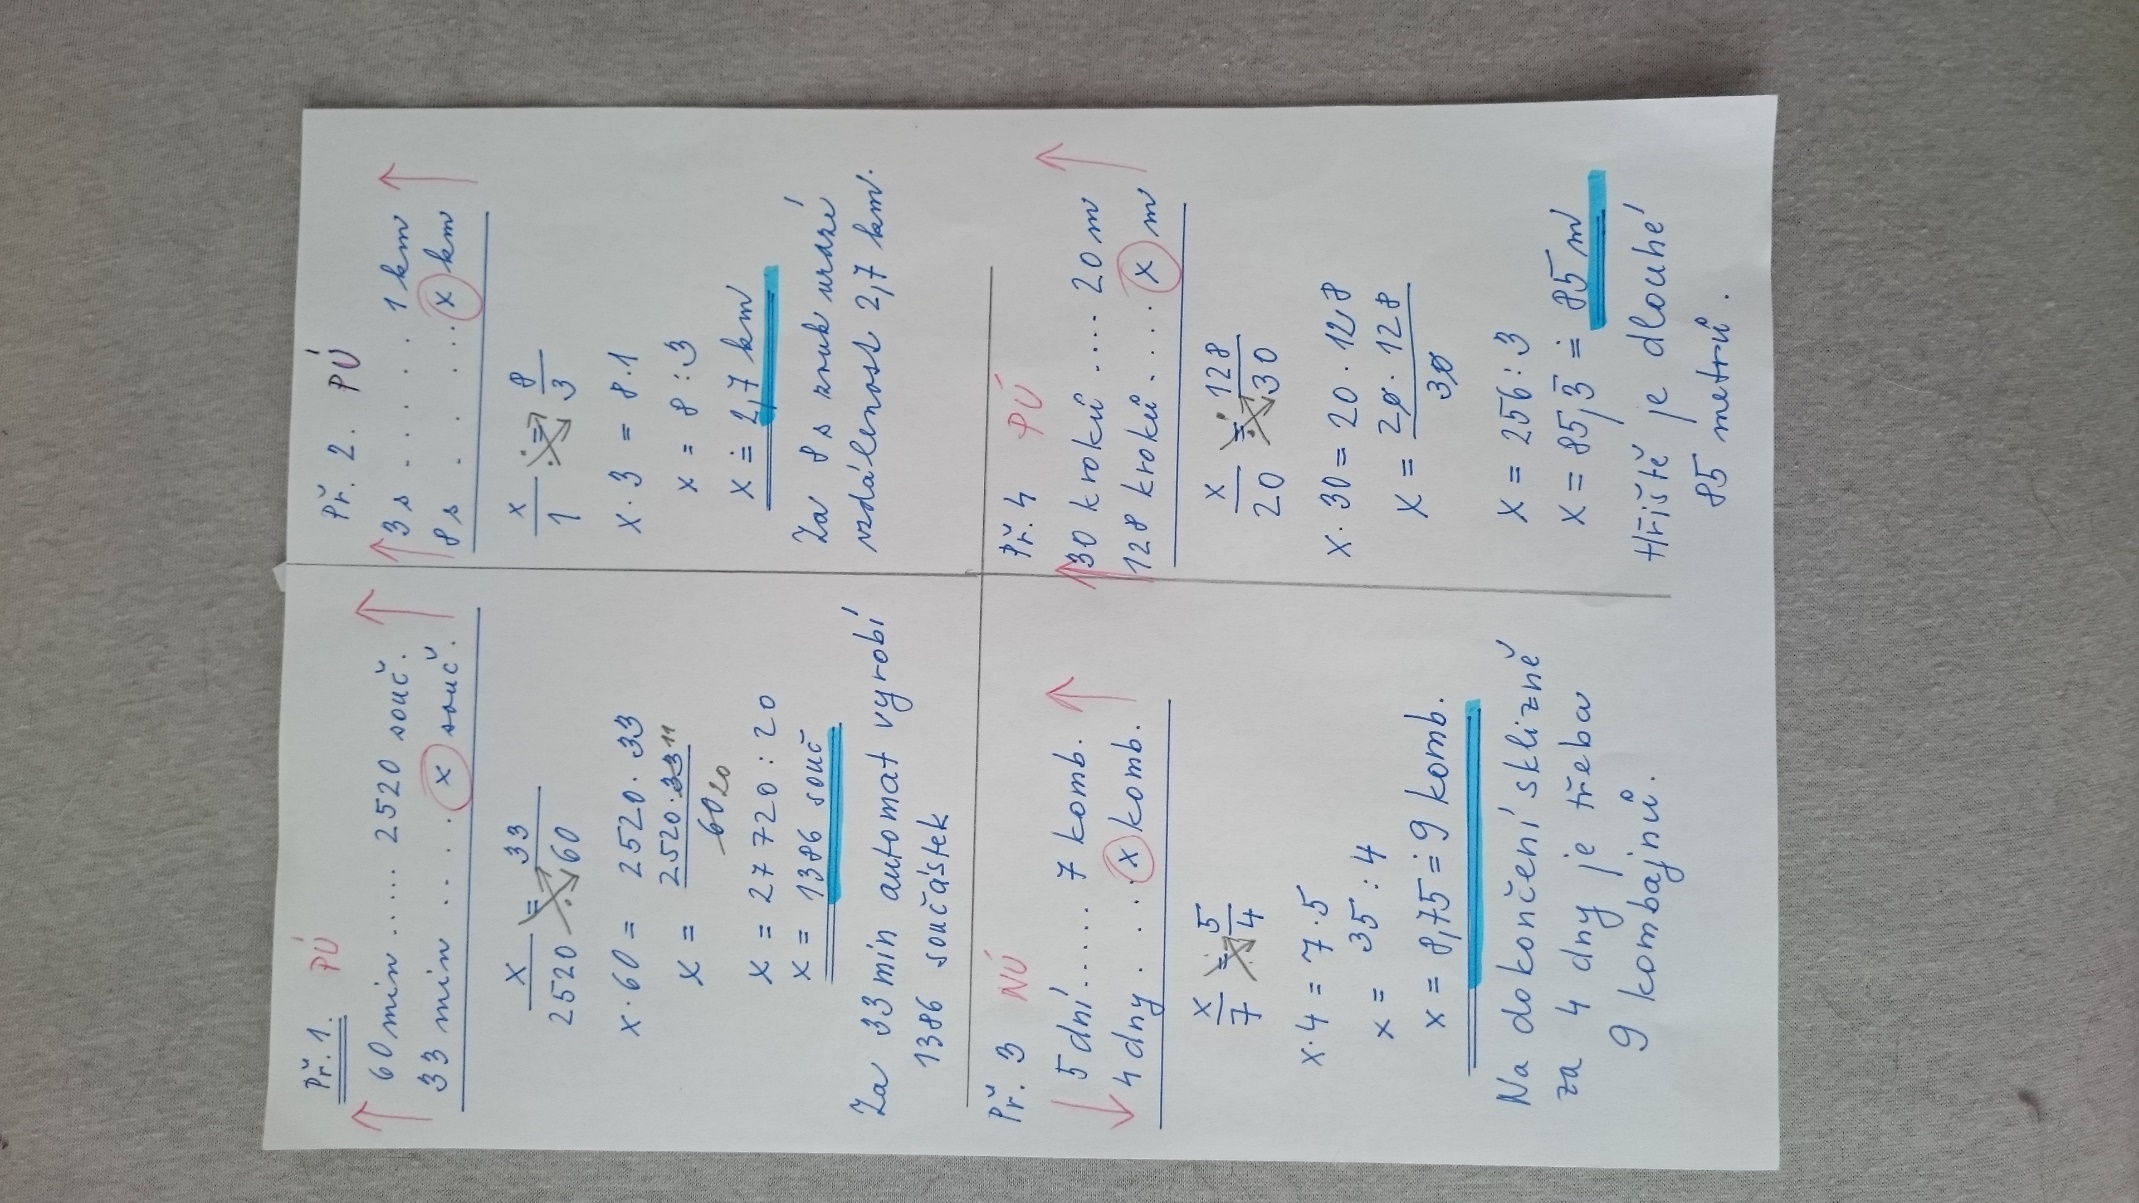 Př. 1. PÚ
60 min ..... 2520 souč.
33 min .. . . x souč.
x/2520 = 33/60
x · 60 = 2520 · 33
x = 2520 · 33 11 / 60 20
x = 27 720 : 20
x = 1386 souč
Za 33 min automat vyrobí
1386 součástek
Př. 2. PÚ
3 s . . . . . 1 km
8 s . . . . x km
x/1 = 8/3
x · 3 = 8 · 1
x = 8 : 3
x ≐ 2,7 km
Za 8 s zvuk urazí
vzdálenost 2,7 km.
Př. 3 NÚ
5 dní ..... 7 komb.
4 dny . . . . x komb.
x/7 = 5/4
x · 4 = 7 · 5
x = 35 : 4
x = 8,75 ≐ 9 komb.
Na dokončení sklizně
za 4 dny je třeba
9 kombajnů.
Př. 4 PÚ
30 kroků .... 20 m
128 kroků . . . . x m
x/20 = 128/30
x · 30 = 20 · 128
x = 20 · 128 / 30
x = 256 : 3
x = 85,3̅ ≐ 85 m
Hřiště je dlouhé
85 metrů.